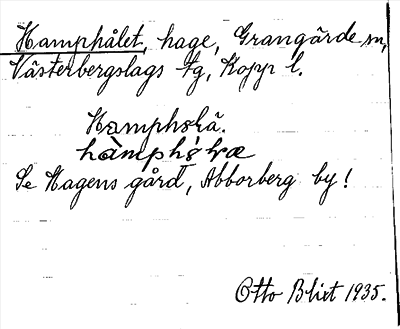 Hamphålet, hage, Grangärde sn,
Västerbergslags tg, Kopp l.
Hamphålä.
Se Hagens gård, Abborberg by!
Otto Blixt 1935.